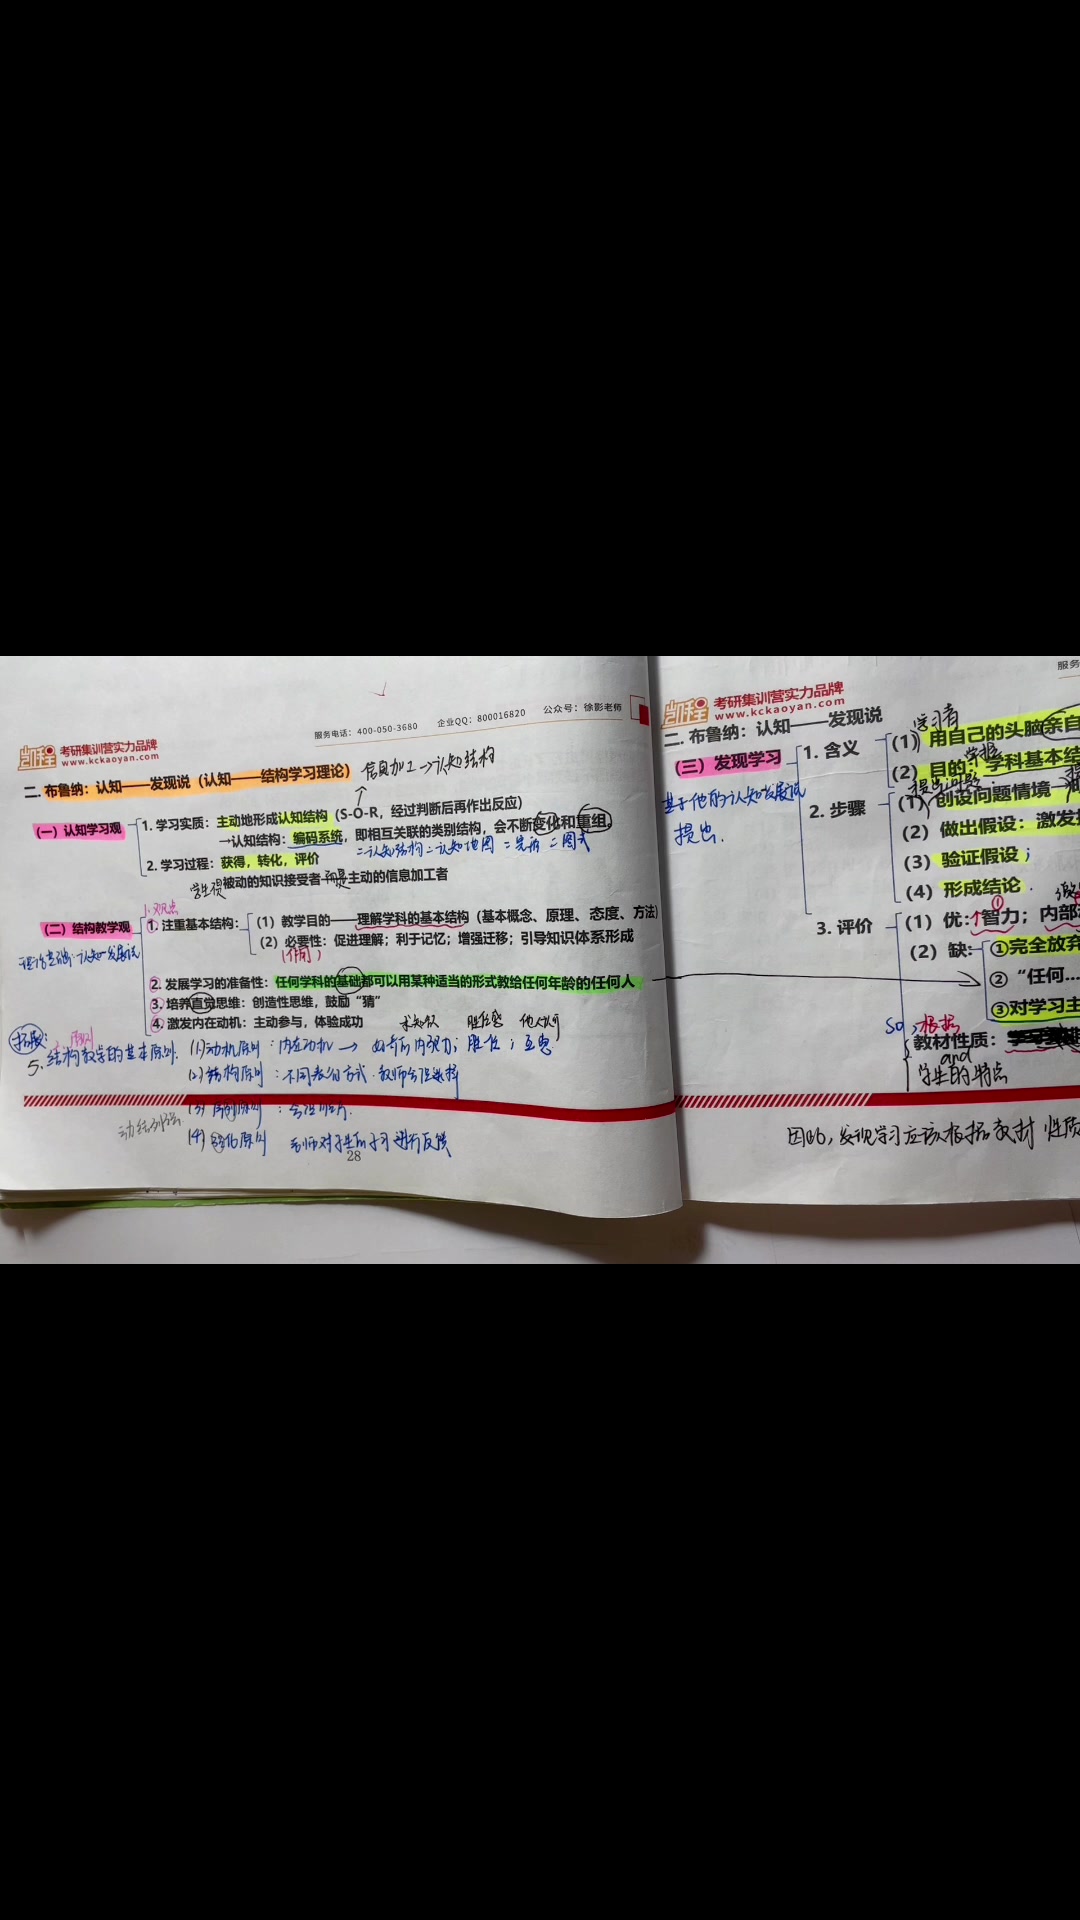 服务电话：400-050-3680 企业QQ：800016820 公众号：徐影老师
凯程 考研集训营实力品牌
www.kckaoyan.com
二. 布鲁纳：认知——发现说（认知——结构学习理论） 信息加工→认知结构
（一）认知学习观
1. 学习实质：主动地形成认知结构（S-O-R，经过判断后再作出反应）
→认知结构：编码系统，即相互关联的类别结构，会不断变化和重组.
=认知结构=认知地图=完形=图式
2. 学习过程：获得，转化，评价
学生项被动的知识接受者而是主动的信息加工者
1. 观点
（二）结构教学观
理论基础：认知发展说
1. 注重基本结构：
（1）教学目的——理解学科的基本结构（基本概念、原理、态度、方法）
（2）必要性：促进理解；利于记忆；增强迁移；引导知识体系形成
（作用）
2. 发展学习的准备性：任何学科的基础都可以用某种适当的形式教给任何年龄的任何人
3. 培养直觉思维：创造性思维，鼓励“猜”
4. 激发内在动机：主动参与，体验成功 求知欲 胜任感
拓展：
原则
5. 结构教学的基本原则.
(1)动机原则：内在动机→ 好奇内驱力；胜任；互惠
(2)结构原则：不同表的方式.教师合理选择
(3)序列原则：
(4)强化原则 老师对学生的学习进行反馈
动结列强
28
服务
凯程 考研集训营实力品牌
www.kckaoyan.com
二. 布鲁纳：认知——发现说
（三）发现学习
基于他的认知发展说
提出.
1. 含义
学习者
（1）用自己的头脑亲自
掌握
（2）目的：学科基本结
2. 步骤
提出问题
（1）创设问题情境
（2）做出假设：激发
（3）验证假设；
（4）形成结论
3. 评价
（1）优：↑智力；内部
（2）缺：
①完全放弃
②“任何...
③对学习主
so，根据
教材性质：
and
学生的特点
因此，发现学习应该根据教材性质